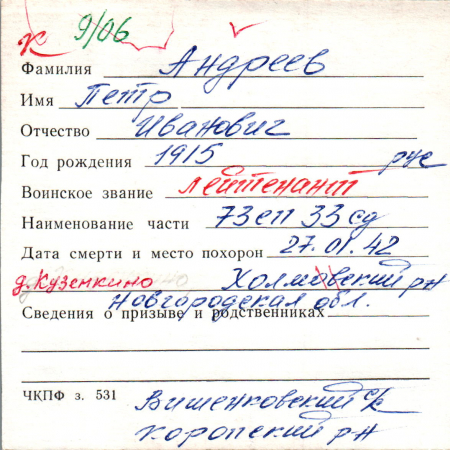 К 9/06
Фамилия Андреев
Имя Петр
Отчество Иванович
Год рождения 1915 рус
Воинское звание лейтенант
Наименование части 73сп 33сд
Дата смерти и место похорон 27.01.42
д.Кузенкино Холмовский рн
Новгородская обл.
Сведения о призыве и родственниках
ЧКПФ з. 531
Вишенковский с/с
Коропский р-н